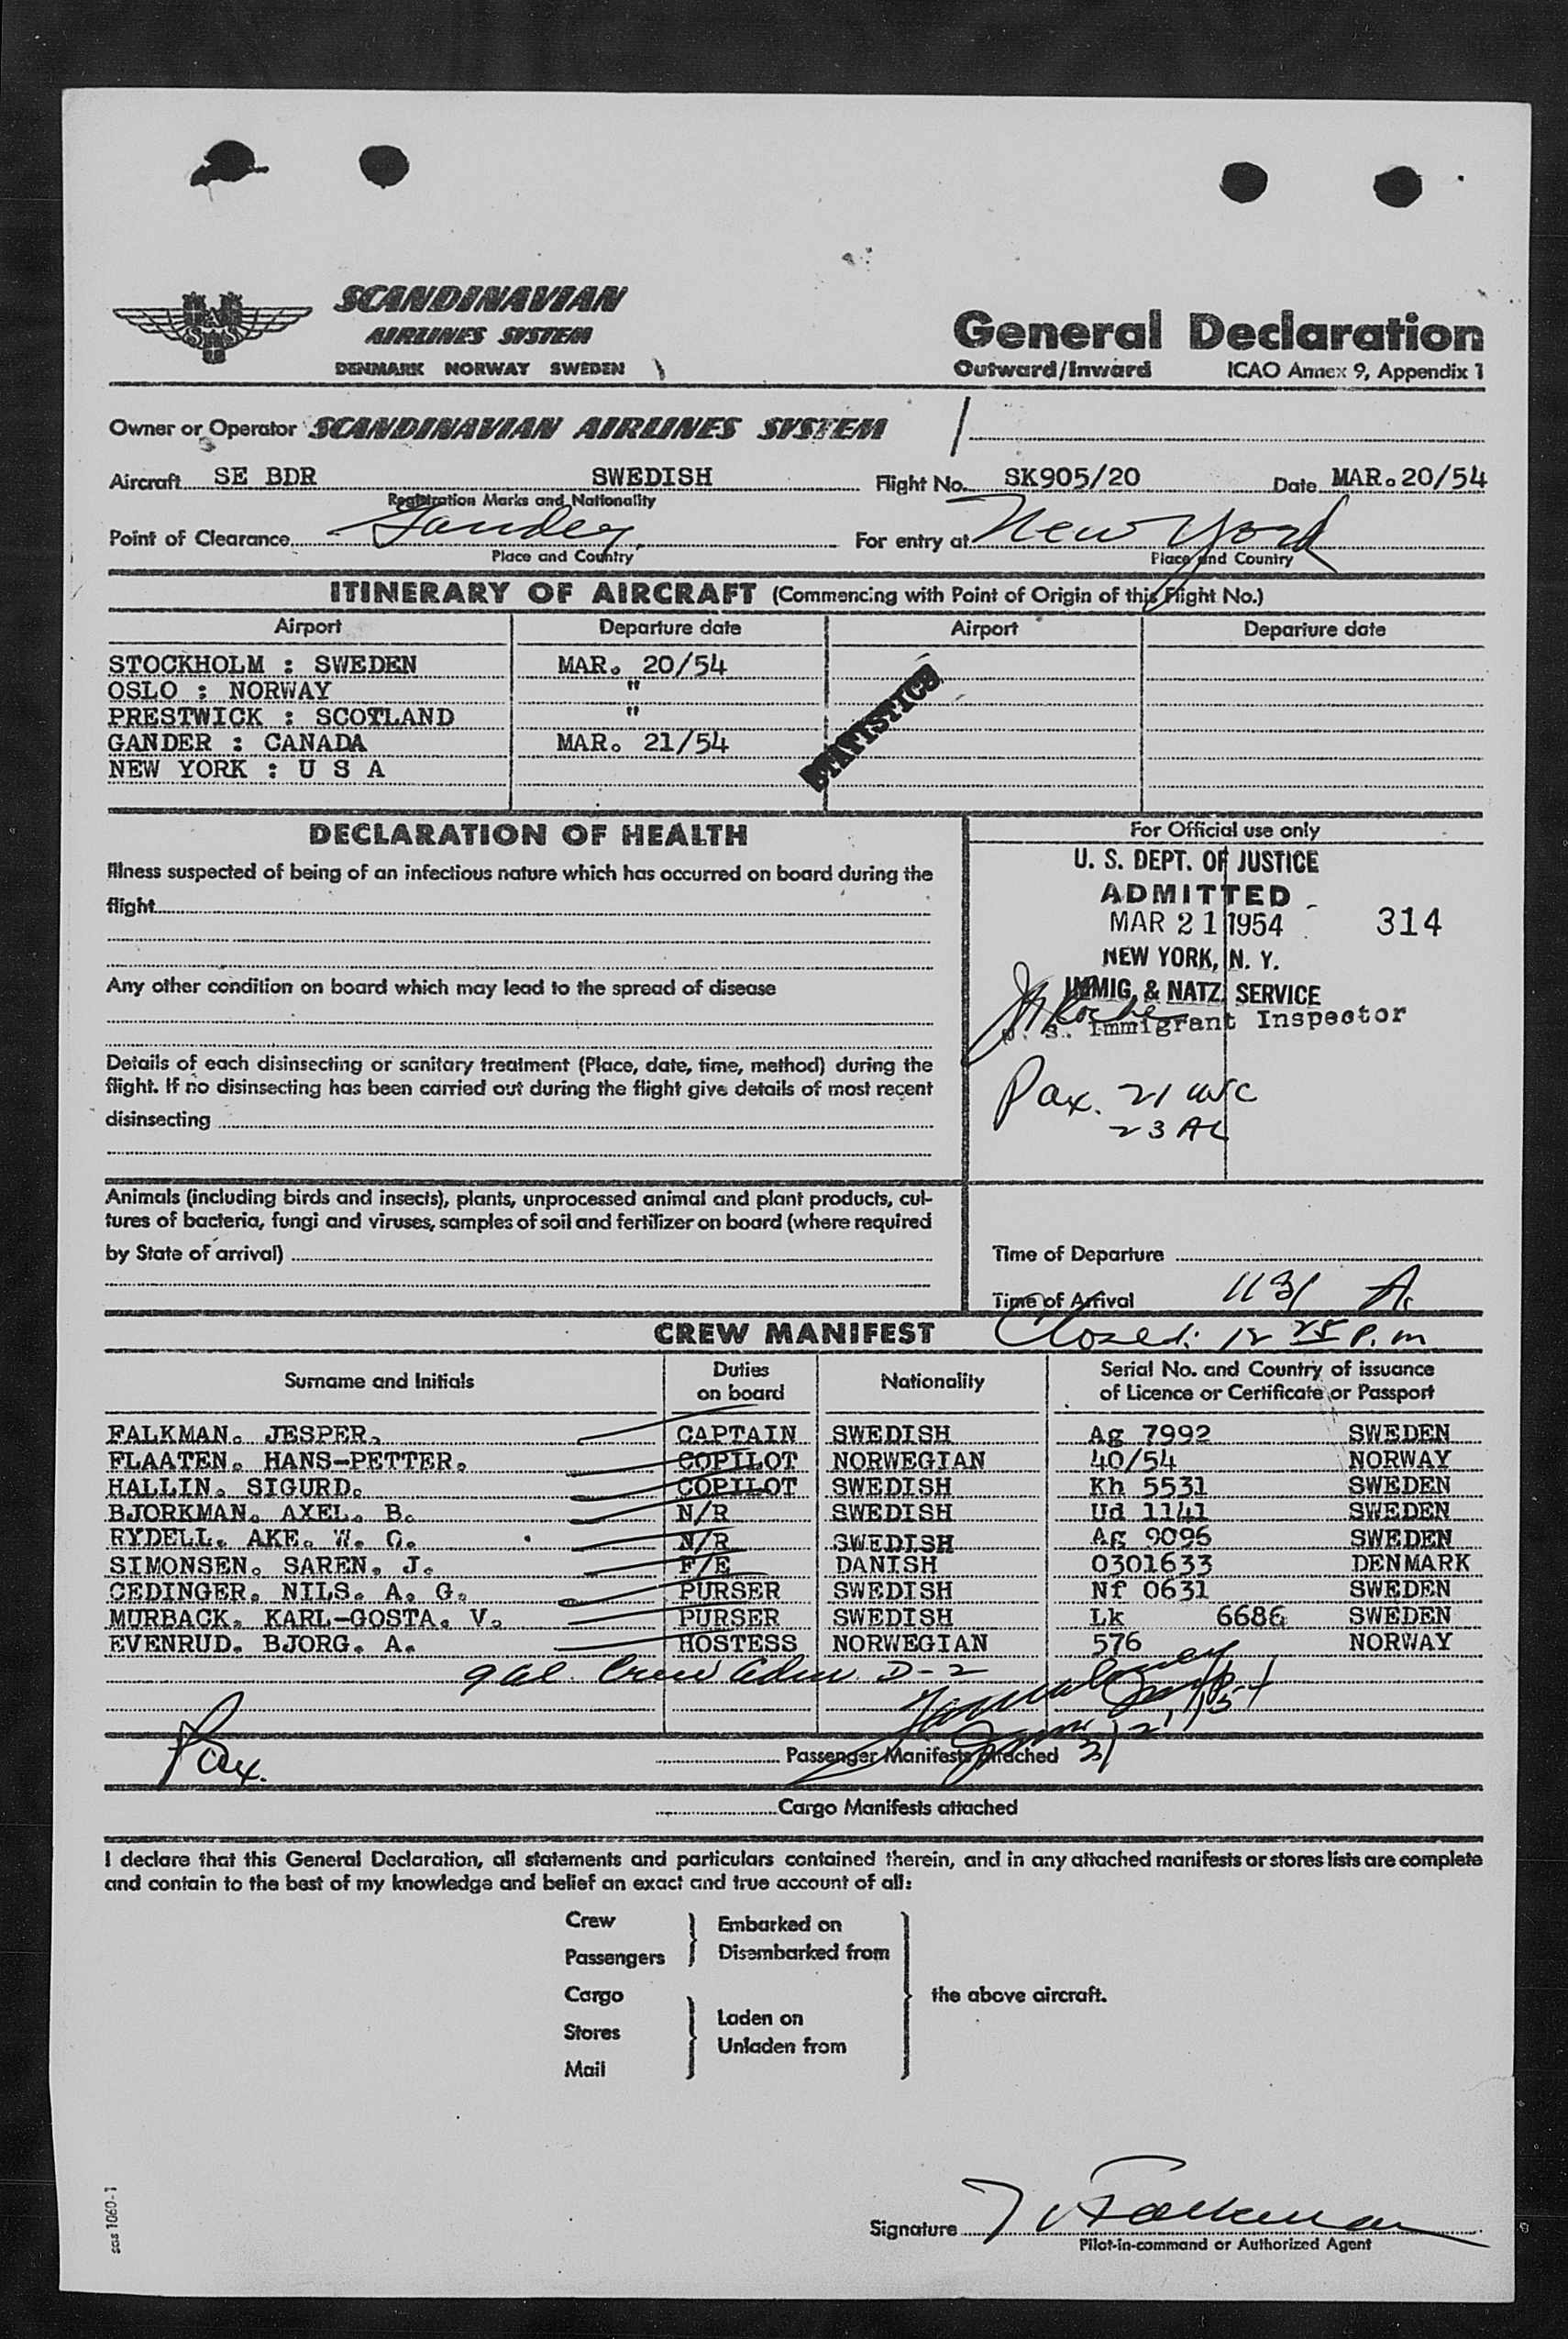 SCANDINAVIAN
AIRLINES SYSTEM
DENMARK NORWAY SWEDEN
General Declaration
Outward/Inward ICAO Annex 9, Appendix 1
Owner or Operator SCANDINAVIAN AIRLINES SYSTEM
Aircraft SE BDR SWEDISH Flight No. SK905/20 Date MAR. 20/54
Registration Marks and Nationality
Point of Clearance Gander For entry at New York
Place and Country Place and Country
ITINERARY OF AIRCRAFT (Commencing with Point of Origin of this Flight No.)
Airport Departure date Airport Departure date
STOCKHOLM : SWEDEN MAR. 20/54
OSLO : NORWAY "
PRESTWICK : SCOTLAND "
GANDER : CANADA MAR. 21/54
NEW YORK : U S A
STATISTICS
DECLARATION OF HEALTH
Illness suspected of being of an infectious nature which has occurred on board during the
flight
Any other condition on board which may lead to the spread of disease
Details of each disinsecting or sanitary treatment (Place, date, time, method) during the
flight. If no disinsecting has been carried out during the flight give details of most recent
disinsecting
Animals (including birds and insects), plants, unprocessed animal and plant products, cul-
tures of bacteria, fungi and viruses, samples of soil and fertilizer on board (where required
by State of arrival)
For Official use only
U. S. DEPT. OF JUSTICE
ADMITTED
MAR 21 1954 314
NEW YORK, N. Y.
IMMIG. & NATZ. SERVICE
U. S. Immigrant Inspector
Pax. 21 USC
23 AL
Time of Departure
Time of Arrival 1131 A.
Closed: 12 25 P.m
CREW MANIFEST
Surname and Initials Duties on board Nationality Serial No. and Country of issuance of Licence or Certificate or Passport
FALKMAN. JESPER. CAPTAIN SWEDISH Ag 7992 SWEDEN
FLAATEN. HANS-PETTER. COPILOT NORWEGIAN 40/54 NORWAY
HALLIN. SIGURD. COPILOT SWEDISH Kh 5531 SWEDEN
BJORKMAN. AXEL. B. N/R SWEDISH Ud 1141 SWEDEN
RYDELL. AKE. W. G. N/R SWEDISH Ag 9096 SWEDEN
SIMONSEN. SAREN. J. F/E DANISH 0301633 DENMARK
CEDINGER. NILS. A. G. PURSER SWEDISH Nf 0631 SWEDEN
MURBACK. KARL-GOSTA. V. PURSER SWEDISH Lk 6686 SWEDEN
EVENRUD. BJORG. A. HOSTESS NORWEGIAN 576 NORWAY
9 al. Crew Adm D-2
Pax.
Passenger Manifests attached
Cargo Manifests attached
I declare that this General Declaration, all statements and particulars contained therein, and in any attached manifests or stores lists are complete
and contain to the best of my knowledge and belief an exact and true account of all:
Crew
Passengers
Embarked on
Disembarked from
Cargo
Stores
Mail
Laden on
Unladen from
the above aircraft.
Signature Falkman
Pilot-in-command or Authorized Agent
sas 1060-1